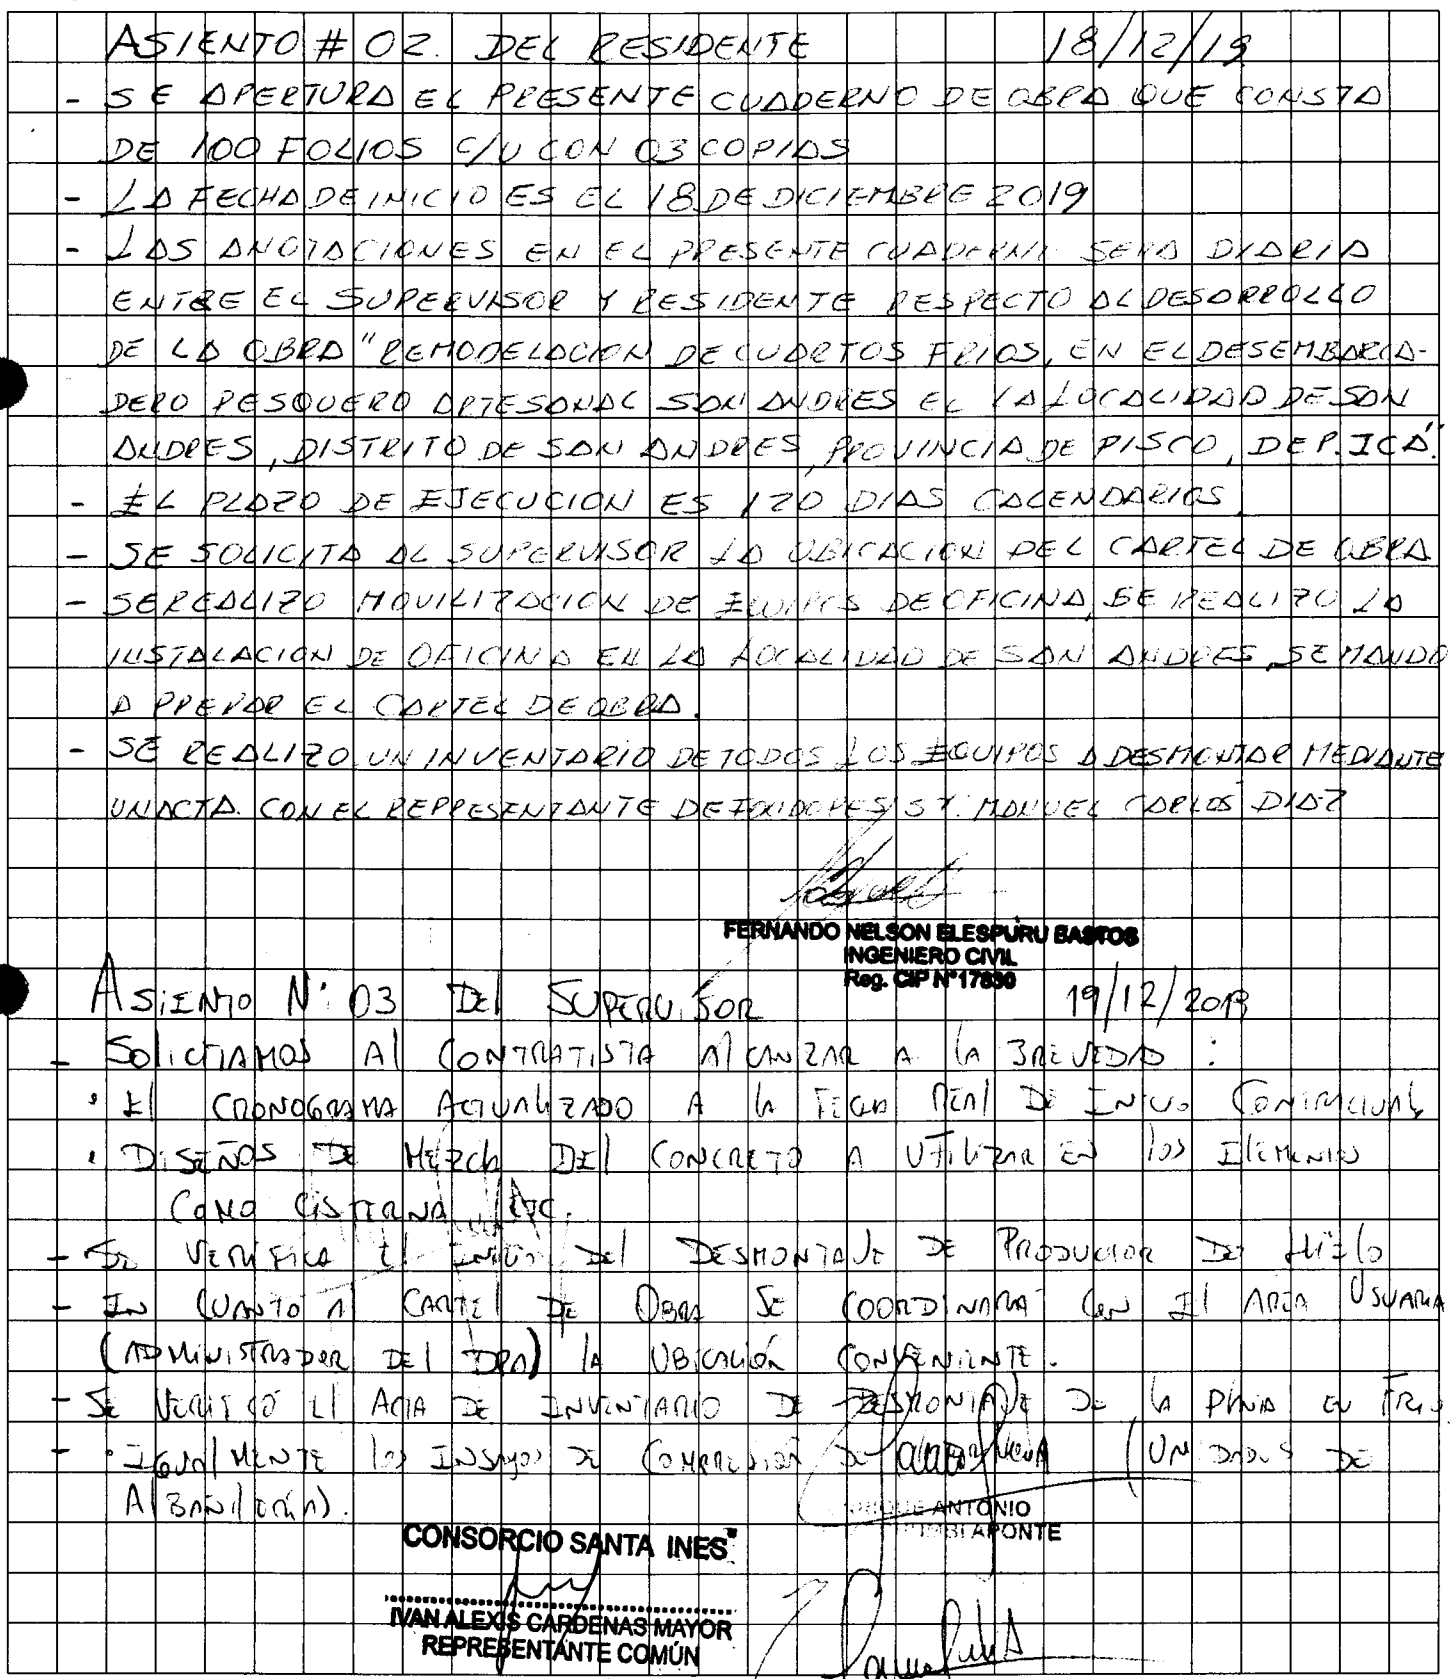 ASIENTO # 02. DEL RESIDENTE 18/12/19
- SE APERTURA EL PRESENTE CUADERNO DE OBRA QUE CONSTA
DE 100 FOLIOS C/U CON 03 COPIAS
- LA FECHA DE INICIO ES EL 18 DE DICIEMBRE 2019
- LAS ANOTACIONES EN EL PRESENTE CUADERNO SERA DIARIA
ENTRE EL SUPERVISOR Y RESIDENTE RESPECTO AL DESARROLLO
DE LA OBRA "REMODELACION DE CUARTOS FRIOS, EN EL DESEMBARCA-
DERO PESQUERO ARTESANAL SAN ANDRES EL LA LOCALIDAD DE SAN
ANDRES, DISTRITO DE SAN ANDRES, PROVINCIA DE PISCO, DEP. ICA".
- EL PLAZO DE EJECUCION ES 120 DIAS CALENDARIOS.
- SE SOLICITA AL SUPERVISOR LA UBICACION DEL CARTEL DE OBRA
- SE REALIZO MOVILIZACION DE EQUIPOS DE OFICINA, SE REALIZO LA
INSTALACION DE OFICINA EN LA LOCALIDAD DE SAN ANDRES, SE MANDO
A PREPAR EL CARTEL DE OBRA.
- SE REALIZO UN INVENTARIO DE TODOS LOS EQUIPOS A DESMONTAR MEDIANTE
UN ACTA. CON EL REPRESENTANTE DE SR. MANUEL CARLOS DIAZ
FERNANDO NELSON ELESPURU BASTOS
INGENIERO CIVIL
Reg. CIP N°17830
ASIENTO N° 03 DEL SUPERVISOR 19/12/2019
- SOLICITAMOS Al CONTRATISTA AlCANZAR A lA BREVEDAD :
• El CRONOGRAMA ACTUALIZADO A lA FECHA REAl DE INICIO CONTRACTUAL
• DISEÑOS DE MEZCLA DEl CONCRETO A UTILIZAR EN lOS ElEMENTOS
COMO CISTERNA, ETC.
- SE VERIFICA El INICIO DEl DESMONTAJE DE PRODUCTOR DE HIElO
- EN CUANTO Al CARTEl DE OBRA SE COORDINARA CON El AREA USUARIA
(ADMINISTRADOR DEl DPA) lA UBICACIÓN CONVENIENTE.
- SE VERIFICÓ El ACTA DE INVENTARIO DE DESMONTAJE DE lA PLANTA EN FRIO.
- • IGUALMENTE lOS ENSAYOS DE COMPRESIÓN DE (UNIDADES DE
AlBAÑIlERÍA).
ANTONIO
APONTE
CONSORCIO SANTA INES
IVAN ALEXIS CARDENAS MAYOR
REPRESENTANTE COMÚN